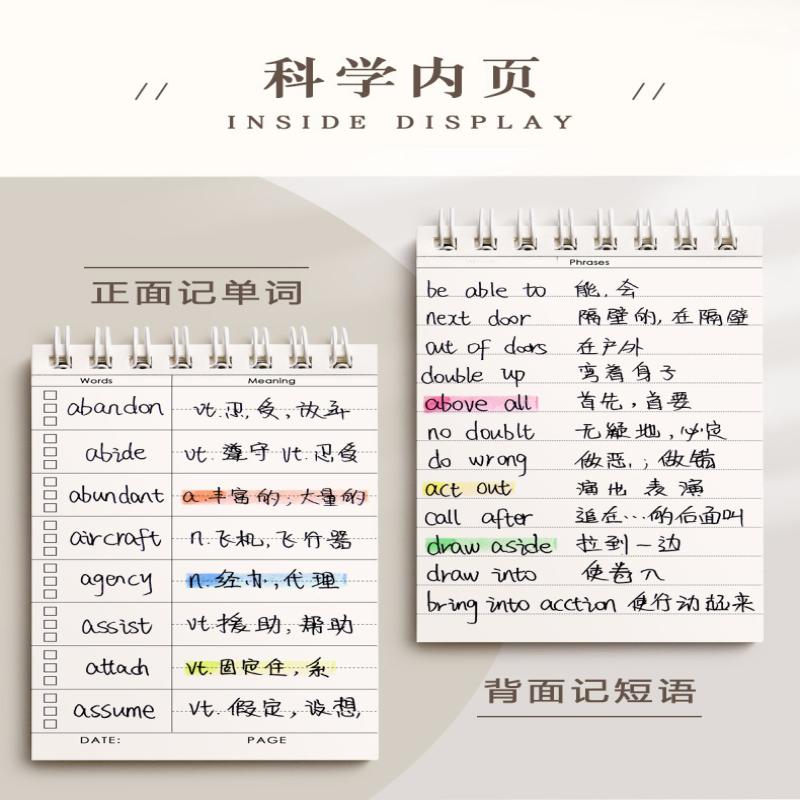 科学内页
// //
INSIDE DISPLAY
正面记单词
Words Meaning
abandon vt.忍受,放弃
abide vt.遵守 vt.忍受
abundant a.丰富的,大量的
aircraft n.飞机,飞行器
agency n.经办,代理
assist vt.援助,帮助
attach vt.固定住,系
assume vt.假定,设想,
DATE: PAGE
Phrases
be able to 能,会
next door 隔壁的,在隔壁
out of doors 在户外
double up 弯着身子
above all 首先,首要
no doublt 无疑地,必定
do wrong 做恶,;做错
act out 演出 表演
call after 追在…的后面叫
draw aside 拉到一边
draw into 使卷入
bring into acction 使行动起来
背面记短语